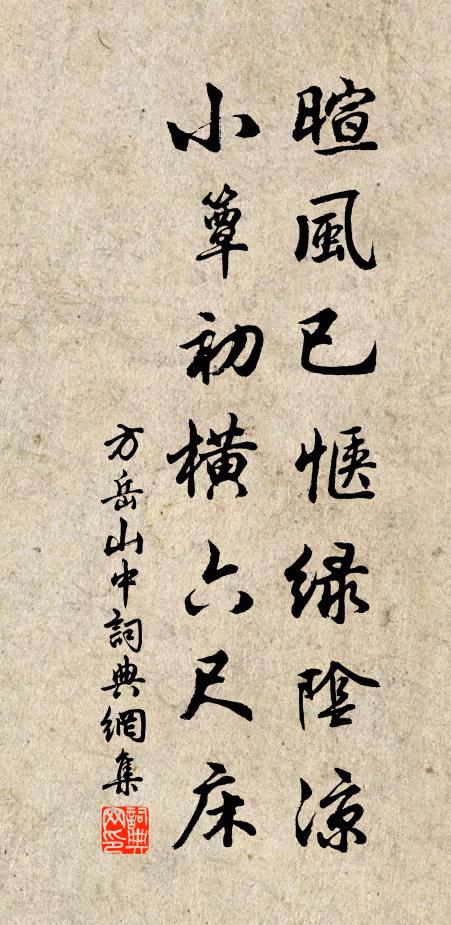 暄風已愜绿陰凉
小簟初橫六尺床
方岳山中詞典網集
詞典網印